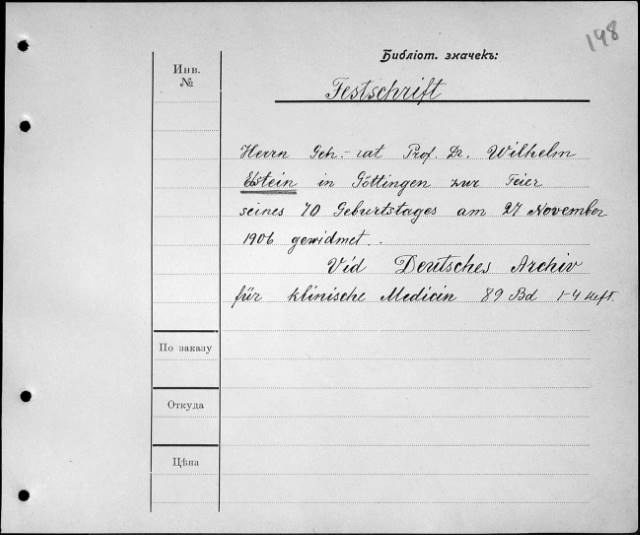 198
Библіот. значекъ:
Инв.
№
Festschrift
Herrn Geh.-rat Prof. Dr. Wilhelm
Ebstein in Göttingen zur Feier
seines 70 Geburtstages am 27 November
1906 gewidmet.
Vid Deutsches Archiv
für klinische Medicin 89 Bd 1-4 Heft.
По заказу
Откуда
Цѣна